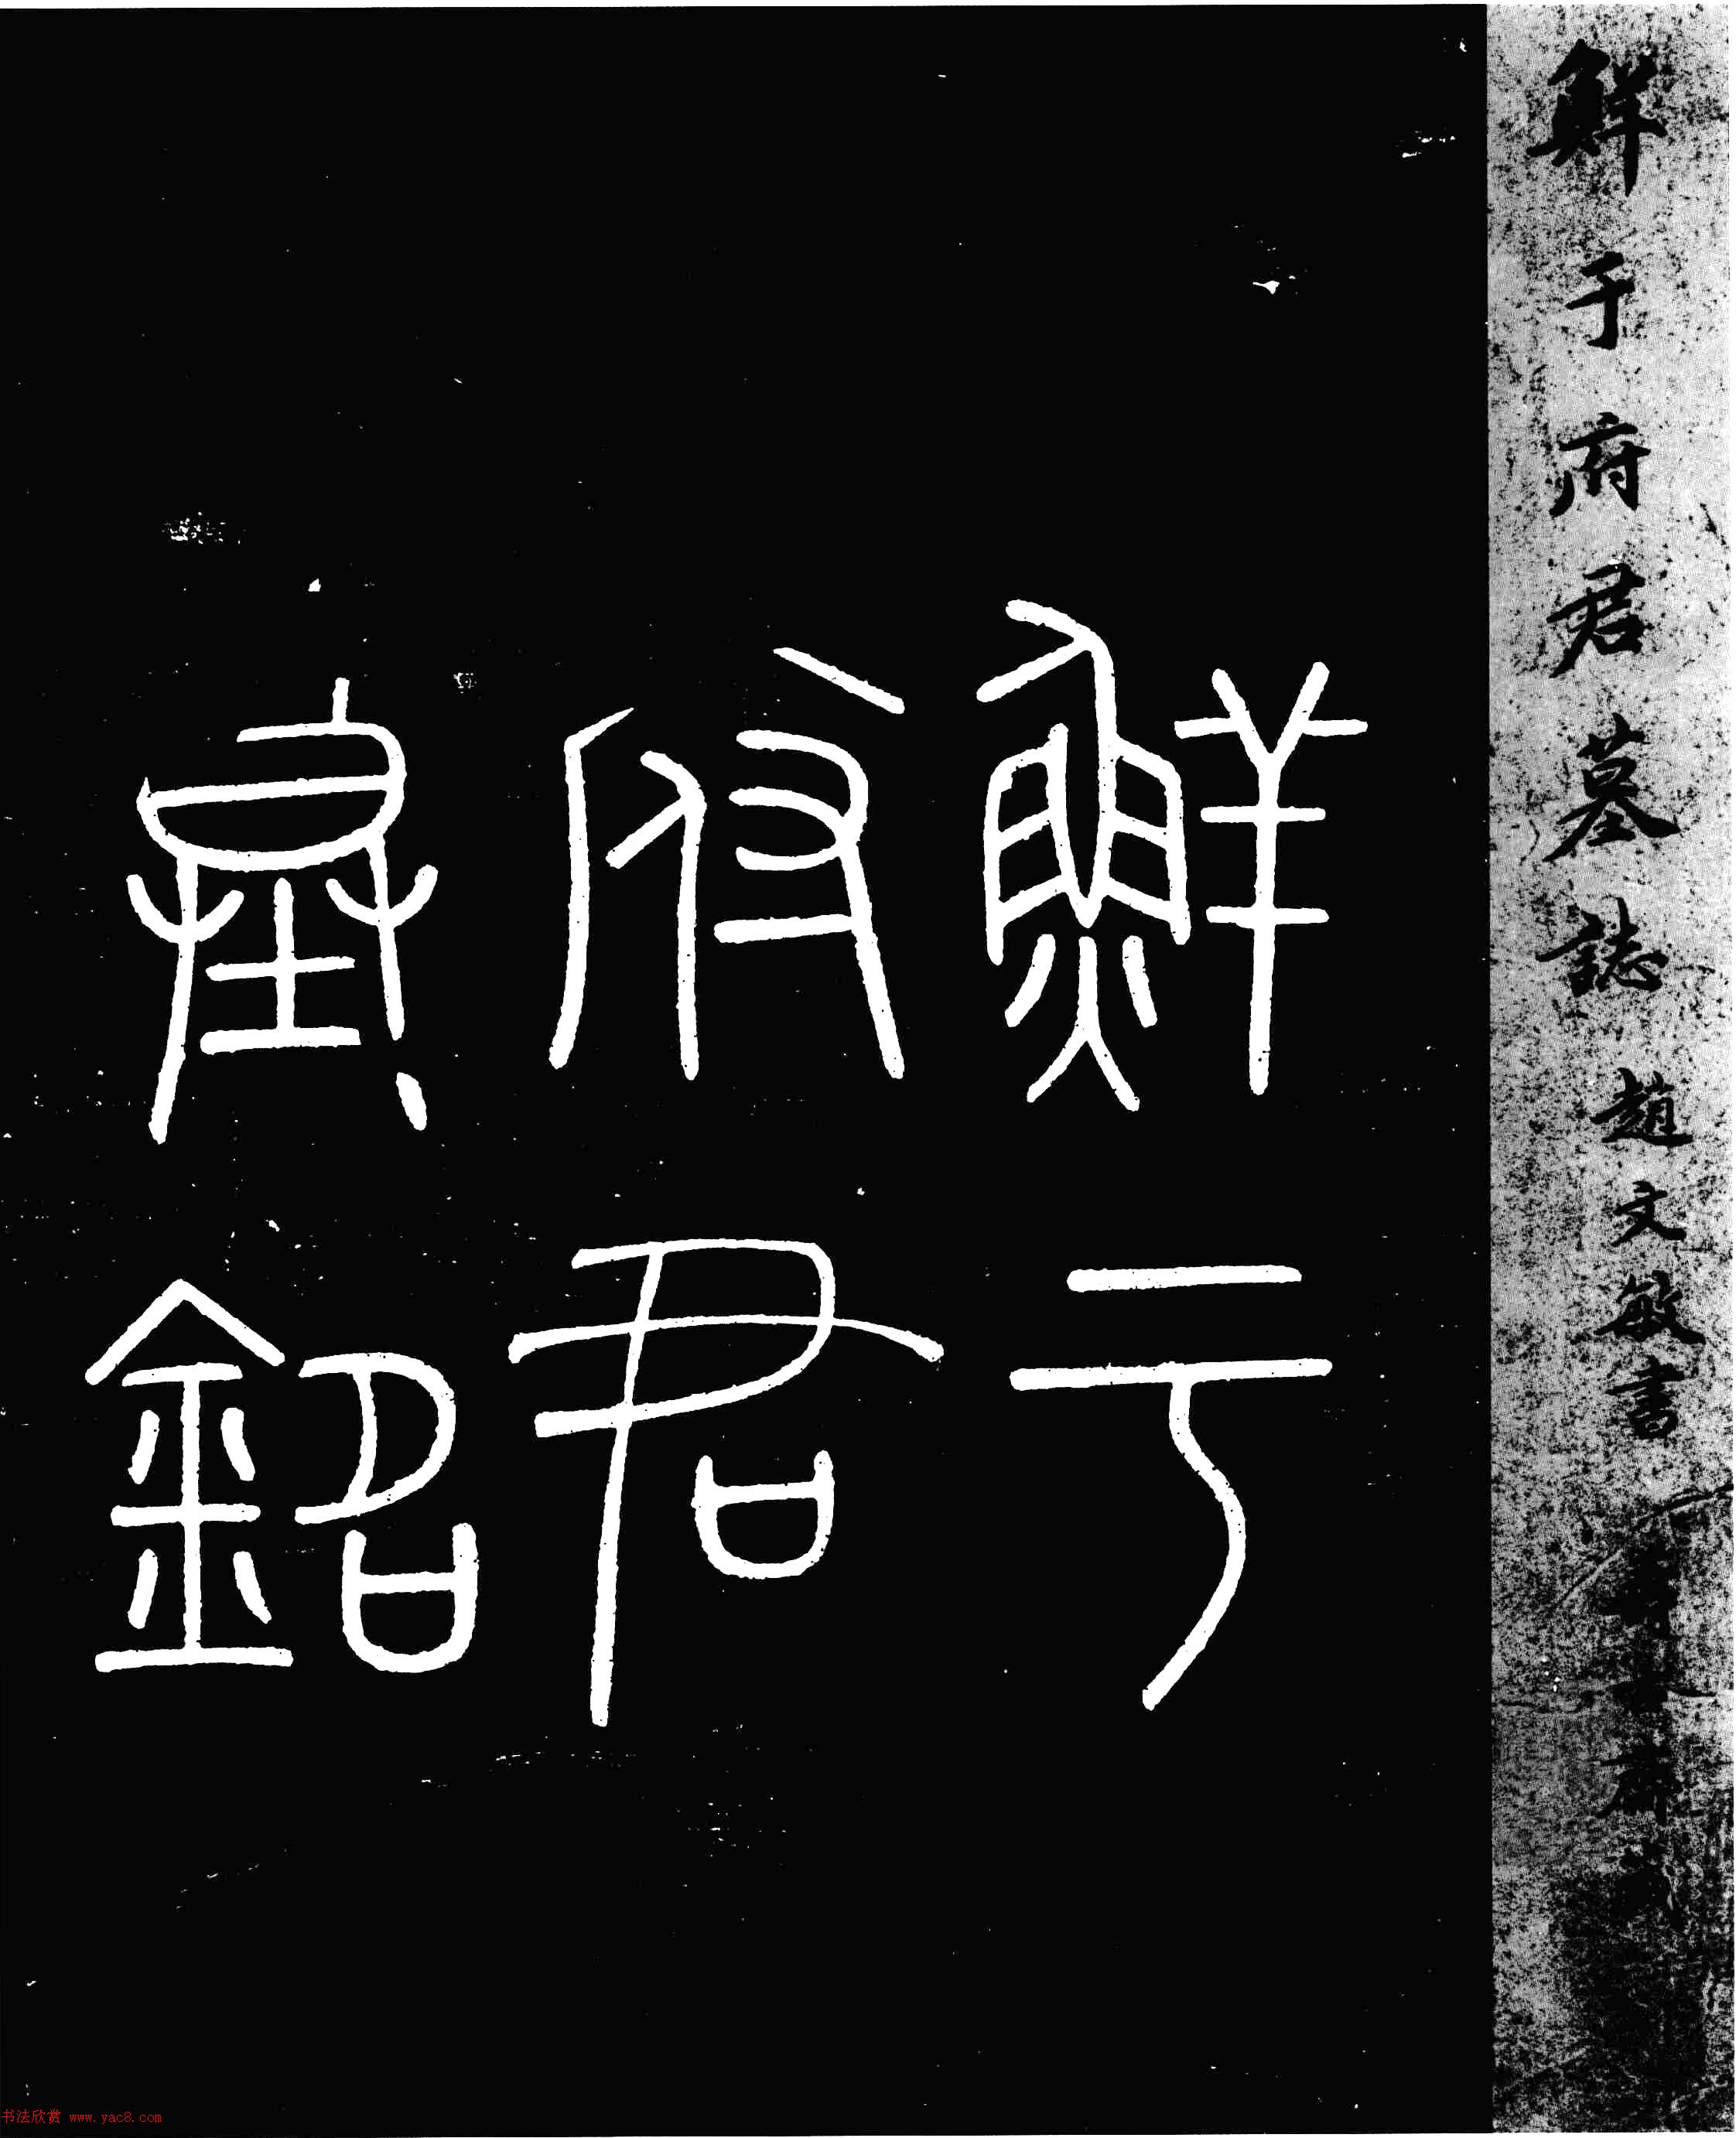 鮮于府君墓誌 趙文敏書
鮮于
府君
銘
书法欣赏 www.yac8.com